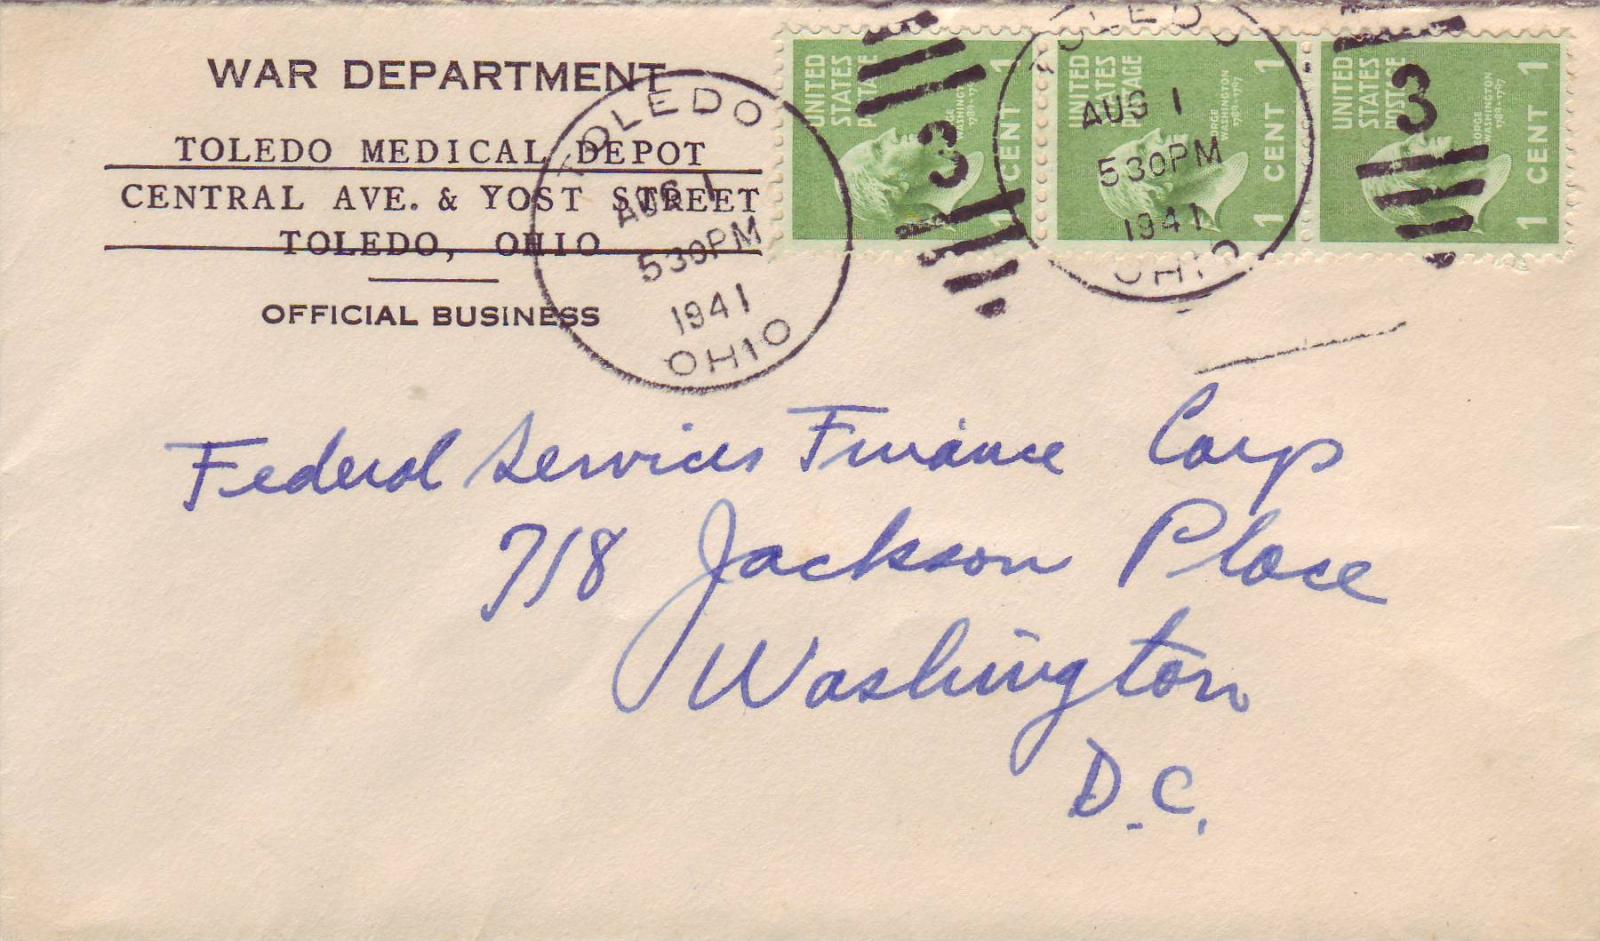 WAR DEPARTMENT
TOLEDO MEDICAL DEPOT
CENTRAL AVE. & YOST STREET
TOLEDO, OHIO
OFFICIAL BUSINESS
TOLEDO
AUG 1
530PM
1941
OHIO
UNITED STATES POSTAGE
1 CENT 1
3
TOLEDO
AUG 1
530PM
1941
OHIO
UNITED STATES POSTAGE
GEORGE WASHINGTON
1789-1797
1 CENT 1
3
UNITED STATES POSTAGE
GEORGE WASHINGTON
1789-1797
1 CENT 1
Federal Services Finance Corp
718 Jackson Place
Washington
D.C.